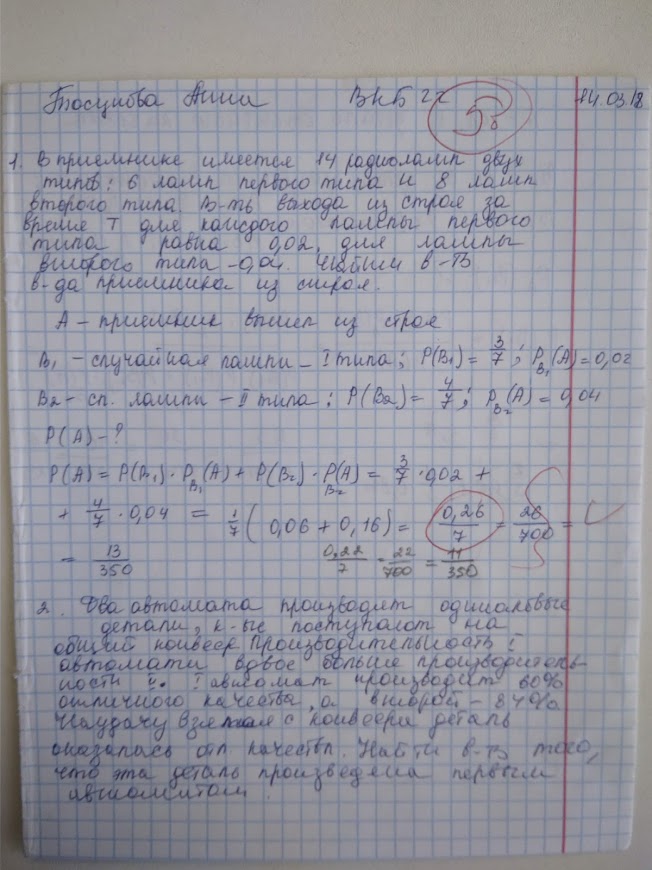 Тосунова Анна ВКБ 22 5 14.03.18
1. В приемнике имеется 14 радиоламп двух
типов: 6 ламп первого типа и 8 ламп
второго типа. В-ть выхода из строя за
время Т для каждого лампы первого
типа равна 0,02, для лампы
второго типа - 0,04. Найти в-ть
в-да приемника из строя.
А - приемник вышел из строя
B₁ - случайная лампа - I типа; P(B₁) = 3/7; P_B₁(A) = 0,02
B₂ - сл. лампа - II типа; P(B₂) = 4/7; P_B₂(A) = 0,04
P(A) - ?
P(A) = P(B₁) · P_B₁(A) + P(B₂) · P_B₂(A) = 3/7 · 0,02 +
+ 4/7 · 0,04 = 1/7 (0,06 + 0,16) = 0,26/7 = 26/700 =
= 13/350 0,22/7 = 22/700 = 11/350
2. Два автомата производят одинаковые
детали, к-ые поступают на
общий конвеер. Производительность I
автомата вдвое больше производитель-
ности II. I автомат производит 60%
отличного качества, а второй - 84%
Наудачу взятая с конвеера деталь
оказалась отл. качества. Найти в-ть того,
что эта деталь произведена первым
автоматом.